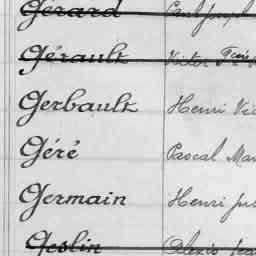 Gérard
Gérault Victor Frçois
Gerbault Henri Vic
Géré Pascal Mar
Germain Henri Ju
Geslin Alexis Jea